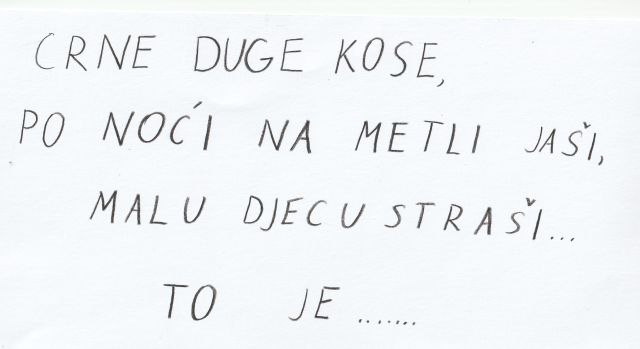 CRNE DUGE KOSE,
PO NOĆI NA METLI JAŠI,
MALU DJECU STRAŠI...
TO JE .......